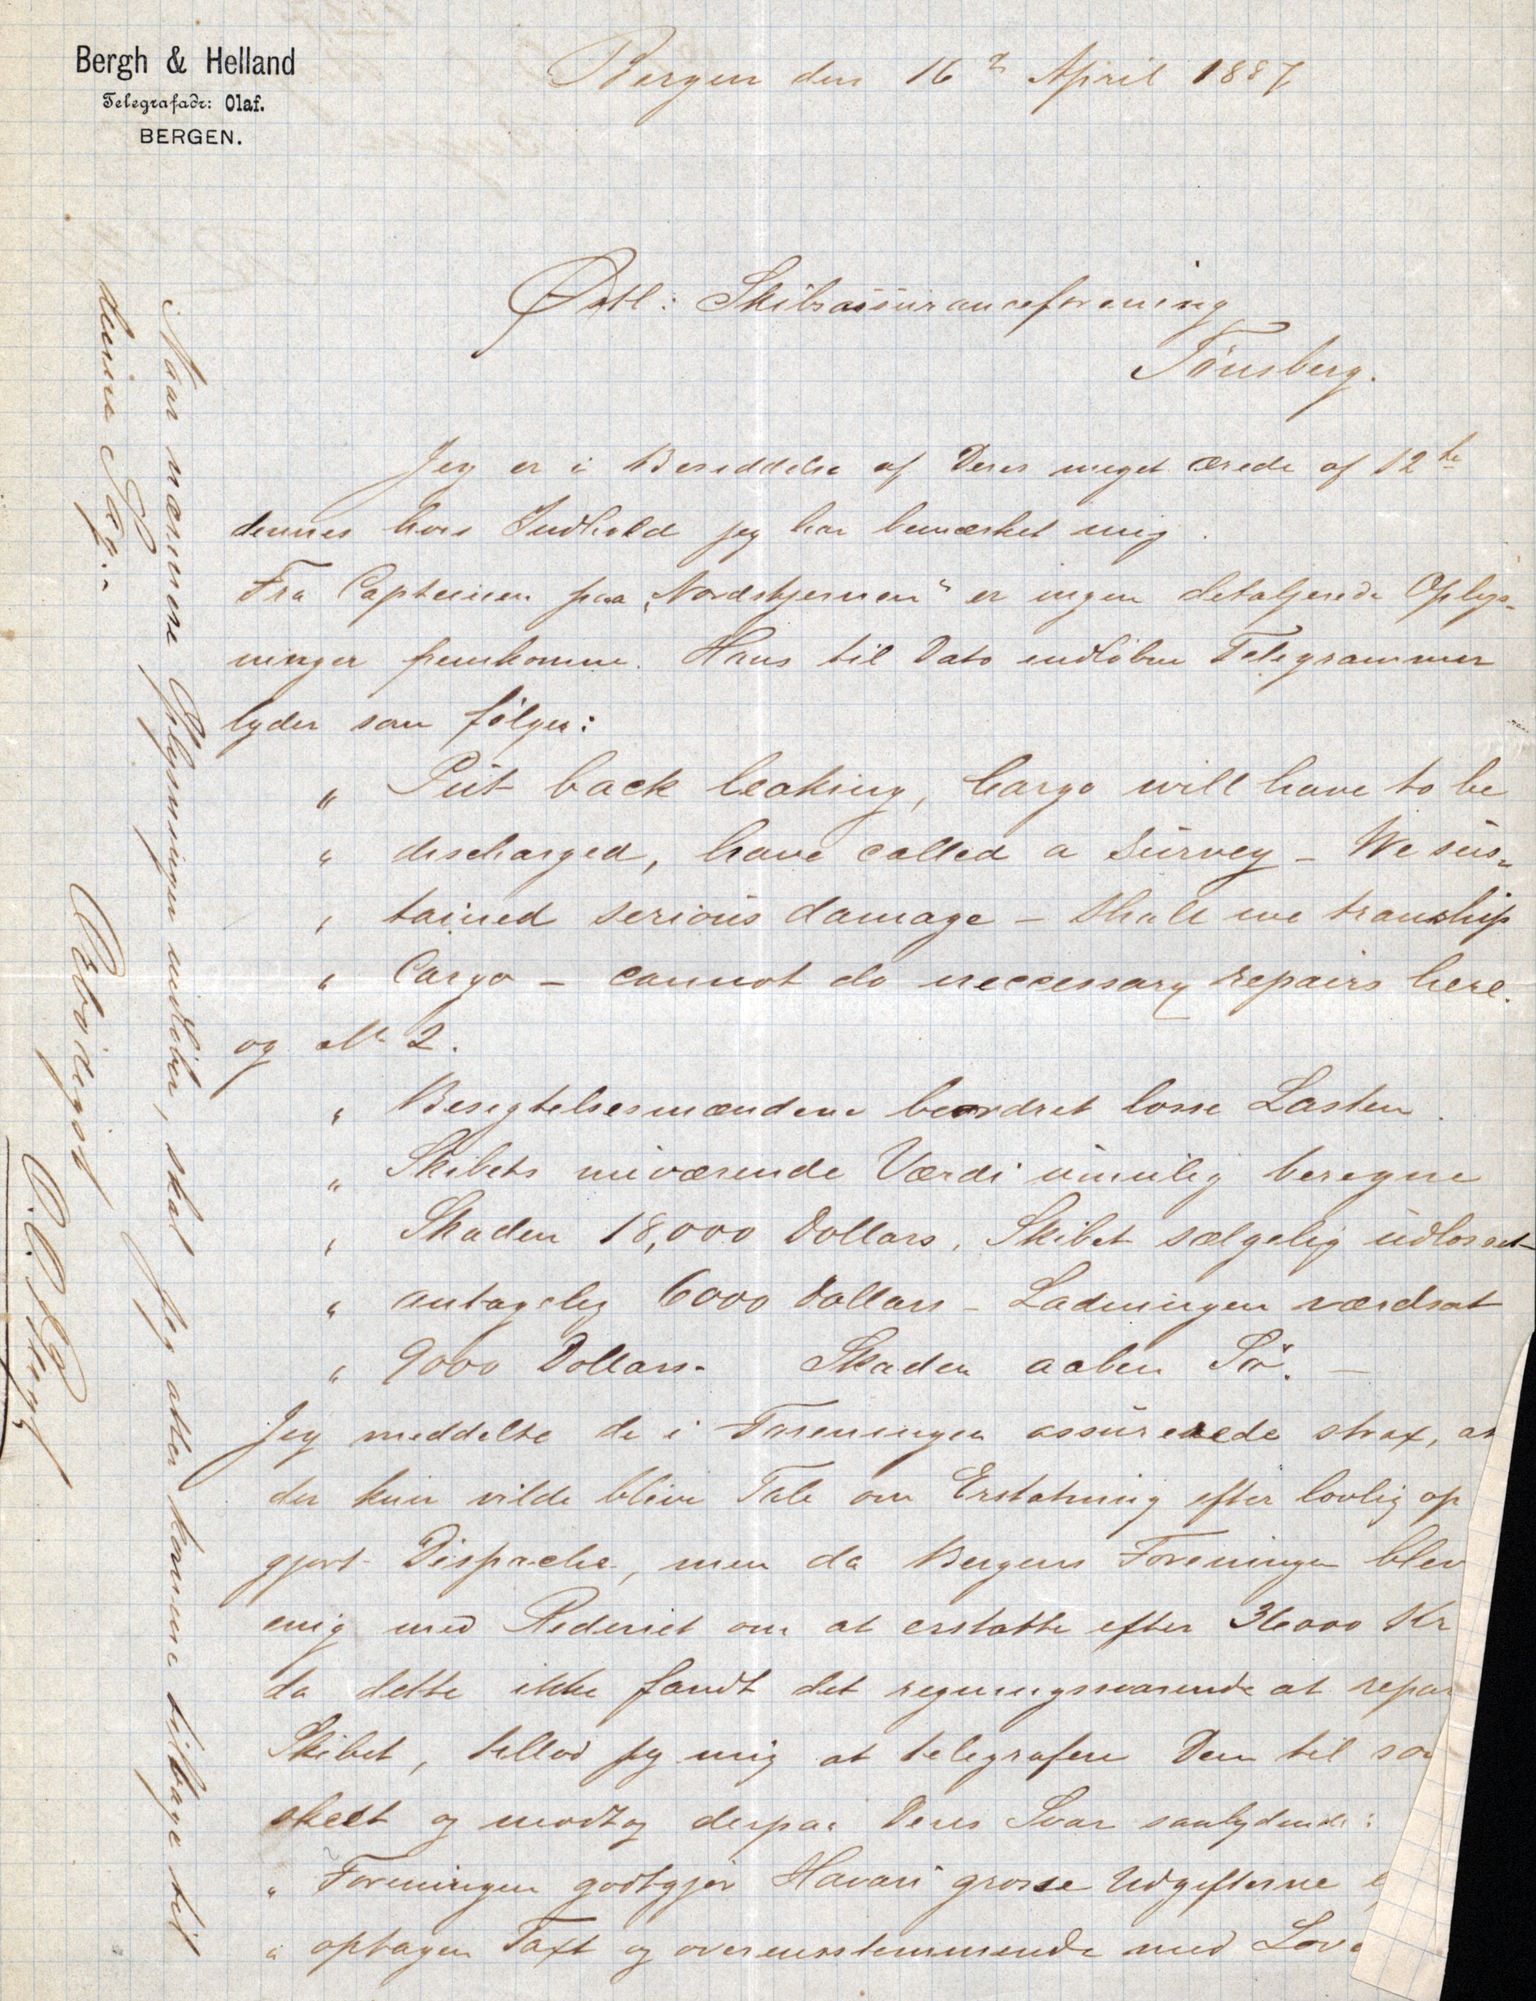 Bergh & Helland
Telegrafadr: Olaf.
BERGEN.
Bergen den 16 April 1887
Østl: Skibsassuranceforening
Tønsberg.
Jeg er i Besiddelse af Deres meget ærede af 12te
dennes hvis Indhold jeg har bemærket mig.
Fra Capteinen paa „Nordstjernen“ er ingen detaljerede Oplys-
ninger fremkomne. Hans til Dato indløbne Telegrammer
lyder som følger:
„ Put back leaking, Cargo will have to be
„ discharged, have called a survey – We sus-
„ tained serious damage – shall we tranship
„ Cargo – cannot do neccessary repairs here.
og No 2.
„ Besigtelsesmændene beordret losse Lasten.
„ Skibets nuværende Værdi umulig beregne
„ Skaden 18,000 Dollars. Skibet sælgelig udlosset
„ antagelig 6000 Dollars – Ladningen værdsat
„ 9000 Dollars. Skaden aaben Sø. –
Jeg meddelte de i Foreningen assurerede strax, at
der kun vilde blive Tale om Erstatning efter lovlig op
gjort Dispache, men da Bergens Foreningen blev
enig med Rederiet om at erstatte efter 36000 Kr
da dette ikke fandt det regningssvarende at repar
Skibet, tillod jeg mig at telegrafere Dem til som
skeet og modtog derpaa Deres Svar saalydende:
„ Foreningen godtgjør Havari grosse Udgifterne
„ optagen Taxt og overensstemmende med Love
Naar nærmere Oplysninger indløber, skal Jeg atter komme tilbage til
denne Sag.
Ærbødigst